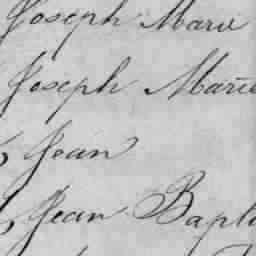 Joseph Marie
Joseph Marie
Jean
Jean Bapti